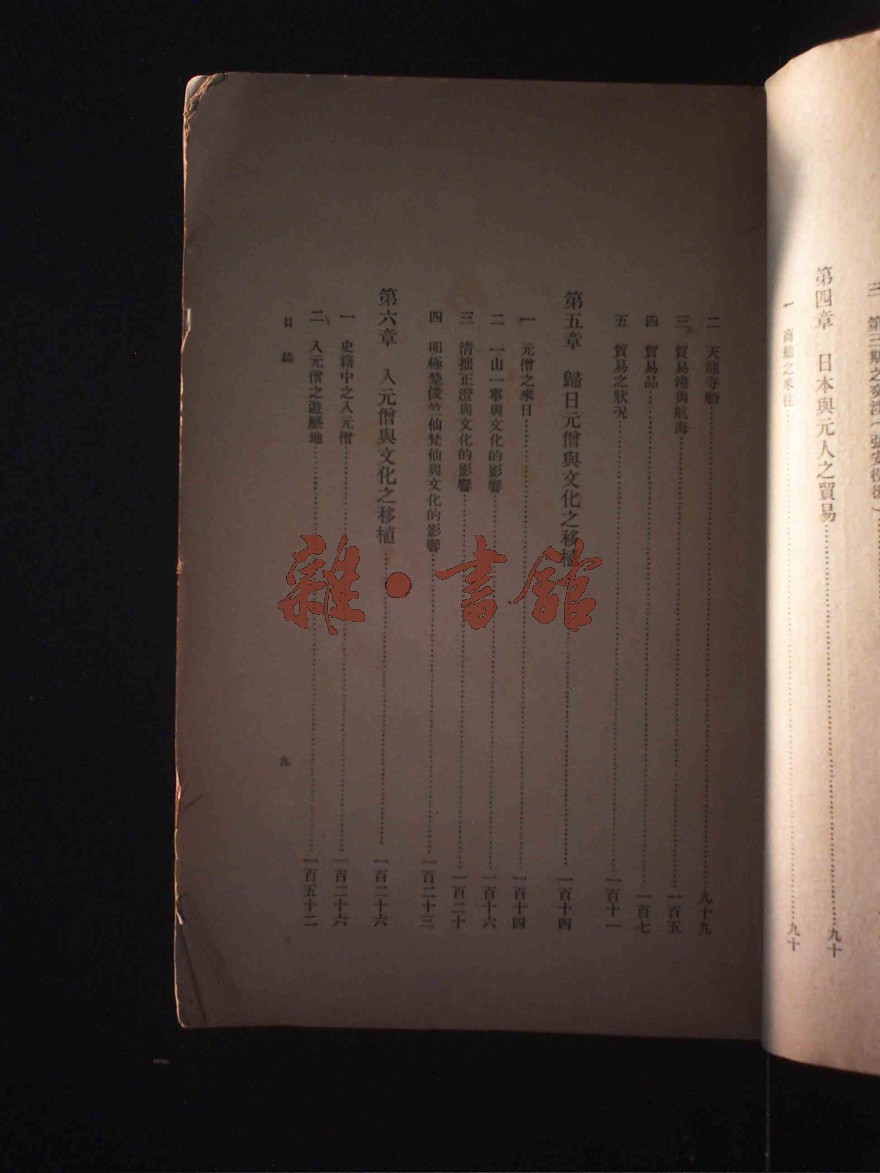 第四章　日本與元人之貿易……九十
一　商船之來往……九十
二　天龍寺船……九十九
三　貿易港與航海……一百五
四　貿易品……一百七
五　貿易之狀況……一百十一
第五章　歸日元僧與文化之移植……一百十四
一　元僧之來日……一百十四
二　一山一寧與文化的影響……一百十六
三　清拙正澄與文化的影響……一百二十
四　明極楚俊竺仙梵仙與文化的影響……一百二十三
第六章　入元僧與文化之移植……一百二十六
一　史籍中之入元僧……一百二十六
二　入元僧之遊歷地……一百五十二
目錄
九
雜·書館